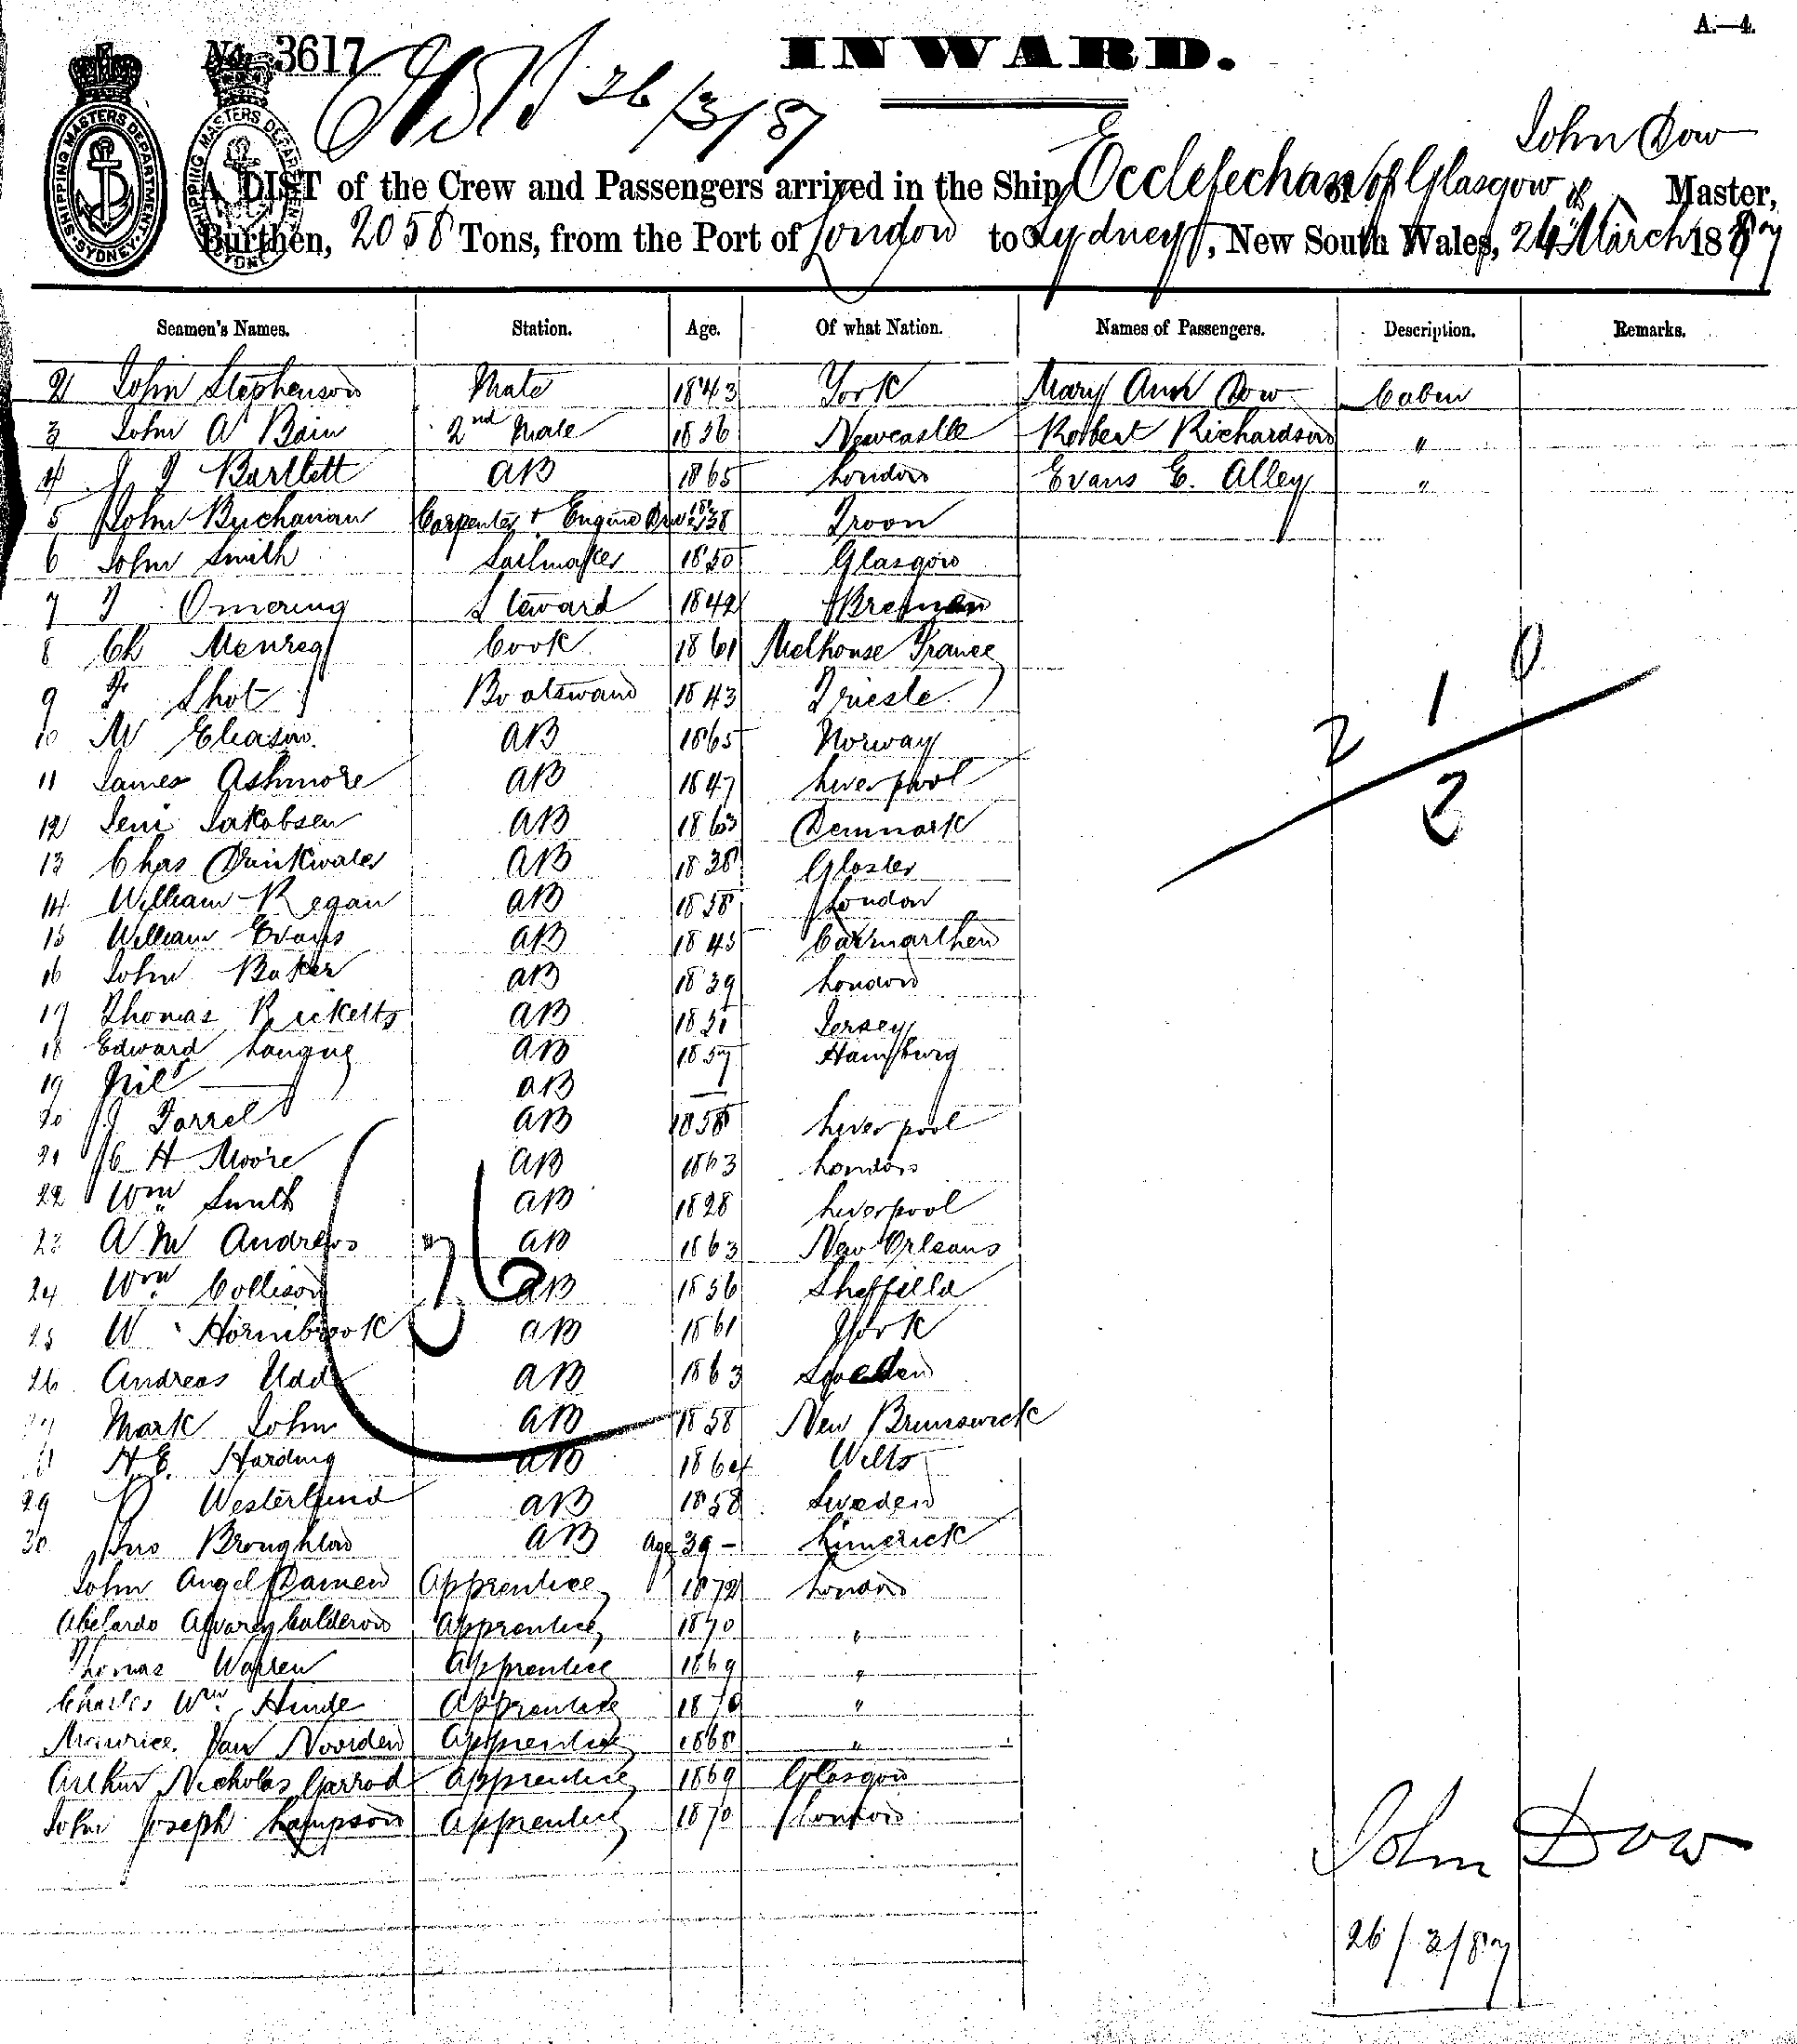 A.—4.
No. 3617
INWARD.
26/3/87
John Dow
A LIST of the Crew and Passengers arrived in the Ship Ecclefechan of Glasgow Master,
Burthen, 2058 Tons, from the Port of London to Sydney, New South Wales, 24 March 1887
SHIPPING MASTERS DEPARTMENT SYDNEY
SHIPPING MASTERS DEPARTMENT SYDNEY
Seamen's Names. Station. Age. Of what Nation. Names of Passengers. Description. Remarks.
2 John Stephenson Mate 1843 York Mary Ann Dow Cabin
3 John A Bain 2nd Mate 1836 Newcastle Robert Richardson "
4 Bartlett AB 1865 London Evans E. Alley "
5 John Buchanan Carpenter & Engine 1838 Troon
6 John Smith Sailmaker 1850 Glasgow
7 Omering Steward 1842 Bremen
8 Ch Menreg Cook 1861 Melhouse France
9 Shot Boatswain 1843 Trieste
10 AB 1865 Norway
11 James Ashmore AB 1847 Liverpool
12 Jens Jakobsen AB 1863 Denmark
13 Chas Drinkwater AB 1838 Gloster
14 William Regan AB 1858 London
15 William Evans AB 1845 Carmarthen
16 John Baker AB 1839 London
17 Thomas Ricketts AB 1851 Jersey
18 Edward AB 1857 Hamburg
19 AB —
20 J Farrel AB 1858 Liverpool
21 C H Moore AB 1863 London
22 Wm Smith AB 1828 Liverpool
23 A M Andrews AB 1863 New Orleans
24 Wm Collison AB 1856 Sheffield
25 W Hornbrook AB 1861 York
26 Andreas Udd AB 1863 Sweden
27 Mark John AB 1858 New Brunswick
H. E. Harding AB 1864 Wilts
29 Westerlund AB 1858 Sweden
30 Jno Broughton AB Age 39 — Limerick
John Angel Damen Apprentice 1872 London
Abelardo Alvarez Calderon Apprentice 1870 "
Thomas Warren Apprentice 1869 "
Charles Wm Hinde Apprentice 1870 "
Maurice Van Noorden Apprentice 1868 "
Arthur Nicholas Garrod Apprentice 1869 Glasgow
John Joseph Lampson Apprentice 1870 London
36
2 1 0
3
John Dow
26/3/87